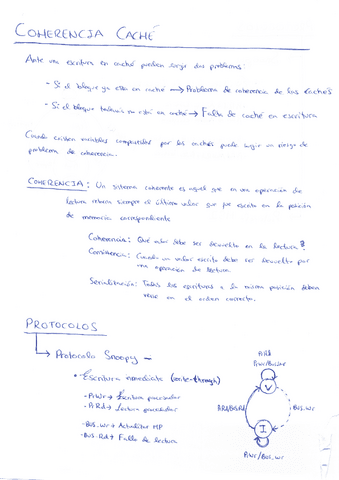 COHERENCIA CACHÉ
Ante una escritura en caché pueden surgir dos problemas:
- Si el bloque ya está en caché → Problema de coherencia de las cachés
- Si el bloque todavía no está en caché → Falta de caché en escritura
Cuando existen variables compartidas por las cachés puede surgir un riesgo de
problema de coherencia.
COHERENCIA: Un sistema coherente es aquel que en una operación de
lectura retorna siempre el último valor que fue escrito en la posición
de memoria correspondiente
Coherencia: Qué valor debe ser devuelto en la lectura?
Consistencia: Cuando un valor escrito debe ser devuelto por
una operación de lectura.
Serialización: Todas las escrituras a la misma posición deben
verse en el orden correcto.
PROTOCOLOS
Protocolo Snoopy -
• Escritura inmediata (write-through)
- PrWr → Escritura procesador
- PrRd → Lectura procesador
- Bus.Wr → Actualizar MP
- Bus.Rd → Fallo de lectura
PrRd
PrWr/BusWr
V
PrRd/BusRd
Bus.Wr
I
PrWr/Bus.Wr